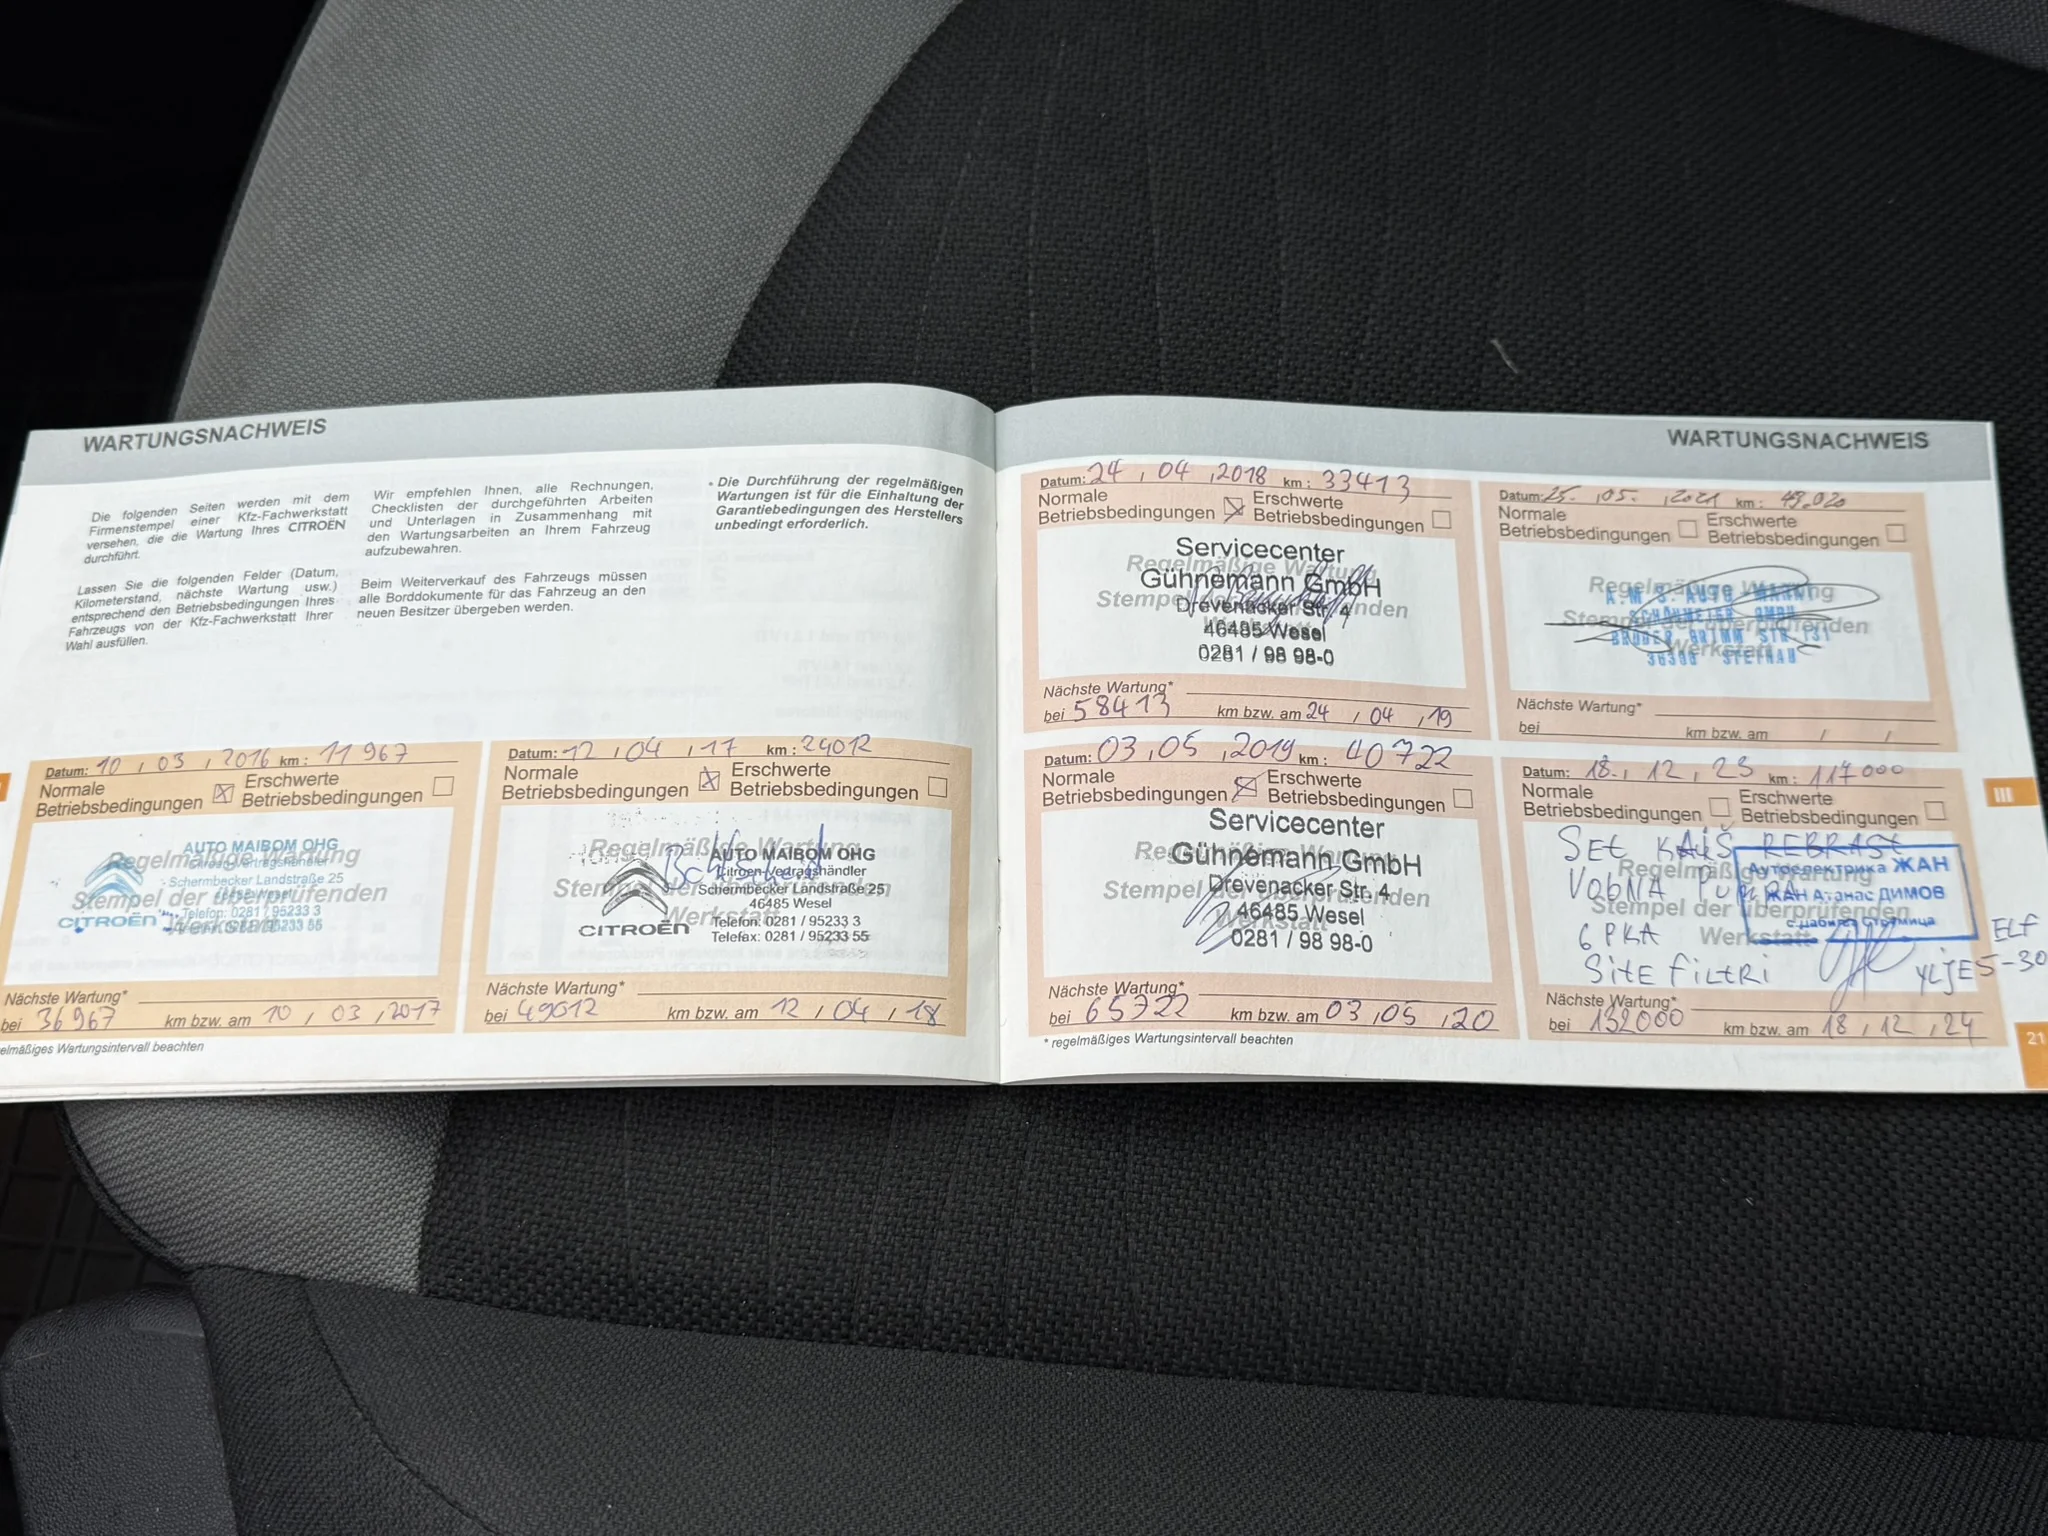 WARTUNGSNACHWEIS
Die folgenden Seiten werden mit dem
Firmenstempel einer Kfz-Fachwerkstatt
versehen, die die Wartung Ihres CITROËN
durchführt.
Lassen Sie die folgenden Felder (Datum,
Kilometerstand, nächste Wartung usw.)
entsprechend den Betriebsbedingungen Ihres
Fahrzeugs von der Kfz-Fachwerkstatt Ihrer
Wahl ausfüllen.
Wir empfehlen Ihnen, alle Rechnungen,
Checklisten der durchgeführten Arbeiten
und Unterlagen in Zusammenhang mit
den Wartungsarbeiten an Ihrem Fahrzeug
aufzubewahren.
Beim Weiterverkauf des Fahrzeugs müssen
alle Borddokumente für das Fahrzeug an den
neuen Besitzer übergeben werden.
* Die Durchführung der regelmäßigen
Wartungen ist für die Einhaltung der
Garantiebedingungen des Herstellers
unbedingt erforderlich.
Datum: 10, 03, 2016 km: 11967
Normale
Betriebsbedingungen
Erschwerte
Betriebsbedingungen
Regelmäßige Wartung
Stempel der überprüfenden
Werkstatt
AUTO MAIBOM OHG
Citroën-Vertragshändler
Schermbecker Landstraße 25
46485 Wesel
Telefon: 0281 / 95233 3
0281 / 95233 55
CITROËN
Nächste Wartung*
bei 36967 km bzw. am 10, 03, 2017
regelmäßiges Wartungsintervall beachten
Datum: 12, 04, 17 km: 24012
Normale
Betriebsbedingungen
Erschwerte
Betriebsbedingungen
Regelmäßige Wartung
Stempel der überprüfenden
Werkstatt
AUTO MAIBOM OHG
Citroën-Vertragshändler
Schermbecker Landstraße 25
46485 Wesel
Telefon: 0281 / 95233 3
Telefax: 0281 / 95233 55
CITROËN
Nächste Wartung*
bei 49012 km bzw. am 12, 04, 18
WARTUNGSNACHWEIS
Datum: 24, 04, 2018 km: 33413
Normale
Betriebsbedingungen
Erschwerte
Betriebsbedingungen
Regelmäßige Wartung
Stempel der überprüfenden
Werkstatt
Servicecenter
Gühnemann GmbH
Drevenacker Str. 4
46485 Wesel
0281 / 98 98-0
Nächste Wartung*
bei 58413 km bzw. am 24, 04, 19
Datum: 03, 05, 2019 km: 40722
Normale
Betriebsbedingungen
Erschwerte
Betriebsbedingungen
Regelmäßige Wartung
Stempel der überprüfenden
Werkstatt
Servicecenter
Gühnemann GmbH
Drevenacker Str. 4
46485 Wesel
0281 / 98 98-0
Nächste Wartung*
bei 65722 km bzw. am 03, 05, 20
* regelmäßiges Wartungsintervall beachten
Datum: 25., 05., 2021 km: 49.020
Normale
Betriebsbedingungen
Erschwerte
Betriebsbedingungen
Regelmäßige Wartung
Stempel der überprüfenden
Werkstatt
A.M.S. AUTO MARKT
GMBH
BRÜDER GRIMM STR. 131
Nächste Wartung*
bei km bzw. am / /
Datum: 18., 12, 23 km: 117000
Normale
Betriebsbedingungen
Erschwerte
Betriebsbedingungen
Regelmäßige Wartung
Stempel der überprüfenden
Werkstatt
SET KAIŠ REBRAST
VODNA PUMPA
6 PKA
SITE FILTRI
ELF
5-30
Автоелектрика ЖАН
ЖАН Атанас ДИМОВ
Nächste Wartung*
bei 132000 km bzw. am 18, 12, 24
III
21